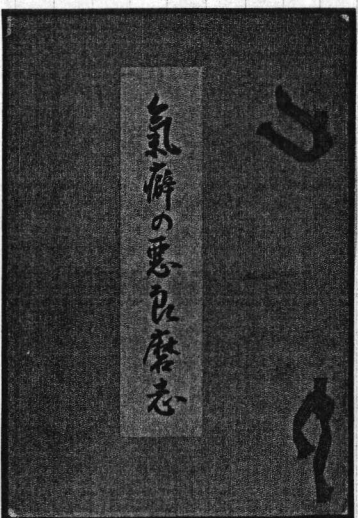 氣癖の悪良磨志